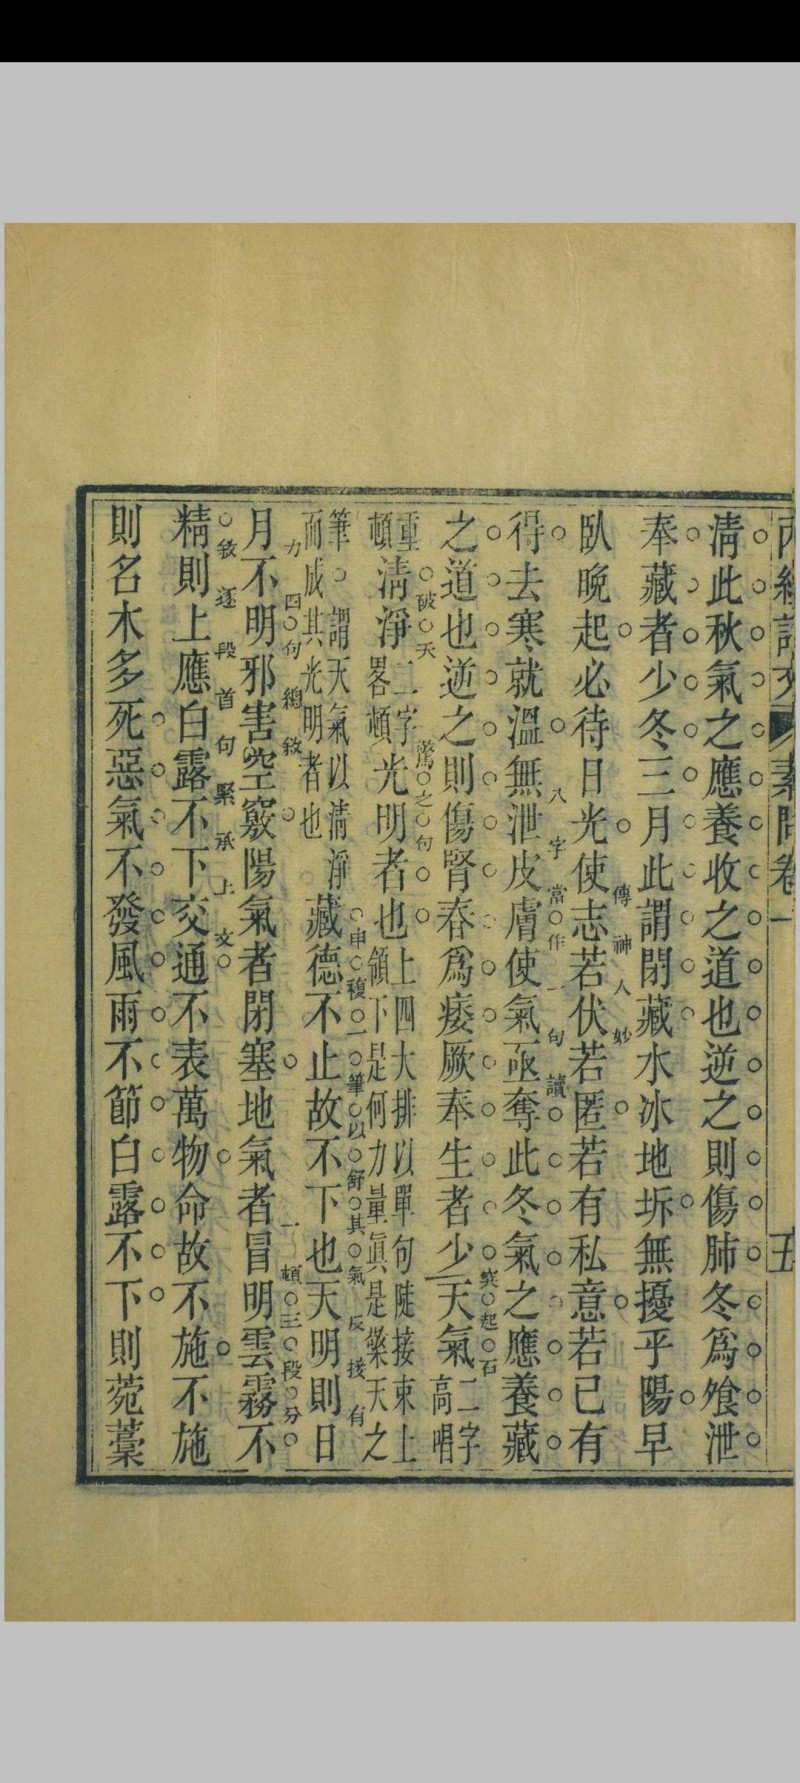 內經評文 素問卷一 五
清此秋氣之應養收之道也逆之則傷肺冬爲飧泄
奉藏者少冬三月此謂閉藏水冰地坼無擾乎陽早
臥晚起必待日光使志若伏若匿若有私意若已有
傳神人妙
得去寒就溫無泄皮膚使氣亟奪此冬氣之應養藏
八字當作一句讀
之道也逆之則傷腎春爲痿厥奉生者少天氣二字高唱
突起石破天驚之句
重頓清淨二字畧頓光明者也上四大排以單句陡接束上領下是何力量眞是樂天之
筆謂天氣以清淨而成其光明者也藏德不止故不下也天明則日
申複一筆以舒其氣反接有力
月不明邪害空竅陽氣者閉塞地氣者冒明雲霧不
四句總敘一頓三段分敘逐段首句緊承上文
精則上應白露不下交通不表萬物命故不施不施
則名木多死惡氣不發風雨不節白露不下則菀藳